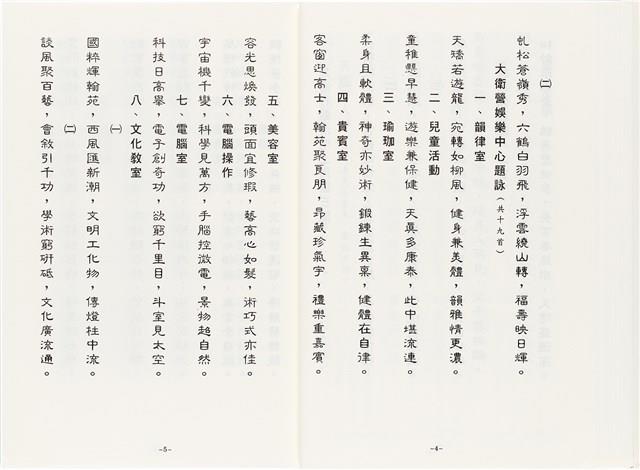 ㈡
虬松蒼嶺秀，六鶴白羽飛，浮雲繞山轉，福壽映日輝。
大衛營娛樂中心題詠（共十九首）
一、韻律室
天矯若遊龍，宛轉如柳風，健身兼美體，韻雅情更濃。
二、兒童活動
童稚慧早慧，遊樂兼保健，天真多康泰，此中堪流連。
三、瑜珈室
柔身且軟體，神奇亦妙術，鍛鍊生異稟，健體在自律。
四、貴賓室
客窗迎高士，翰苑聚良朋，昂藏珍氣宇，禮樂重嘉賓。
-4-
五、美容室
容光思煥發，頭面宜修瑕，藝高心如髮，術巧式亦佳。
六、電腦操作
宇宙機千變，科學見萬方，手腦控微電，景物超自然。
七、電腦室
科技日高舉，電子創奇功，欲窮千里目，斗室見太空。
八、文化教室
㈠
國粹輝翰苑，西風匯新潮，文明工化物，傳燈柱中流。
㈡
談風聚百藝，會敘引千功，學術窮研砥，文化廣流通。
-5-